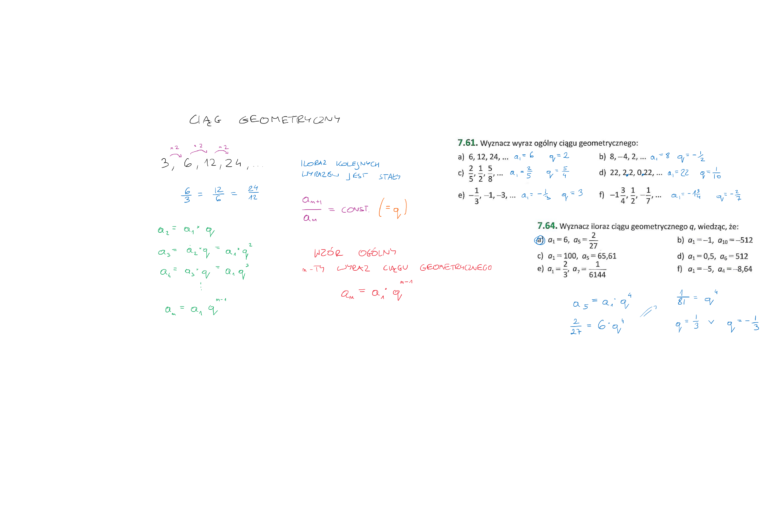 CIĄG GEOMETRYCZNY
·2 ·2 ·2
3, 6, 12, 24, ...
6/3 = 12/6 = 24/12
ILORAZ KOLEJNYCH
WYRAZÓW JEST STAŁY
aₙ₊₁/aₙ = CONST. (= q)
a₂ = a₁ · q
a₃ = a₂ · q = a₁ · q²
a₄ = a₃ · q = a₁ q³
⋮
aₙ = a₁ qⁿ⁻¹
WZÓR OGÓLNY
n-TY WYRAZ CIĄGU GEOMETRYCZNEGO
aₙ = a₁ · qⁿ⁻¹
7.61. Wyznacz wyraz ogólny ciągu geometrycznego:
a) 6, 12, 24, ... a₁ = 6 q = 2
b) 8, −4, 2, ... a₁ = 8 q = −1/2
c) 2/5, 1/2, 5/8, ... q = 5/4
d) 22, 2,2, 0,22, ... a₁ = 22 q = 1/10
e) −1/3, −1, −3, ... a₁ = −1/3 q = 3
f) −1 3/4, 1/2, −1/7, ...
7.64. Wyznacz iloraz ciągu geometrycznego q, wiedząc, że:
a) a₁ = 6, a₅ = 2/27
b) a₁ = −1, a₁₀ = −512
c) a₂ = 100, a₅ = 65,61
d) a₁ = 0,5, a₆ = 512
e) a₁ = 2/3, a₇ = 1/6144
f) a₁ = −5, a₄ = −8,64
a₅ = a₁ · q⁴
2/27 = 6 · q⁴
1/81 = q⁴
q = 1/3 ∨ q = −1/3